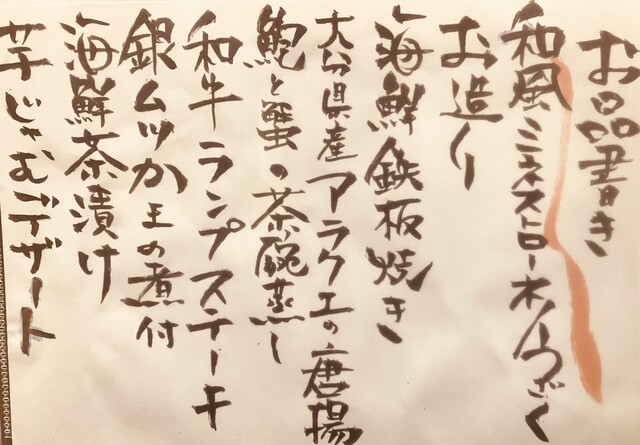 お品書き
和風ミネストローネ/うざく
お造り
海鮮鉄板焼き
大分県産アラクエの唐揚
鮑と蟹の茶碗蒸し
和牛ランプステーキ
銀ムツカマの煮付
海鮮茶漬け
芋じゃむデザート